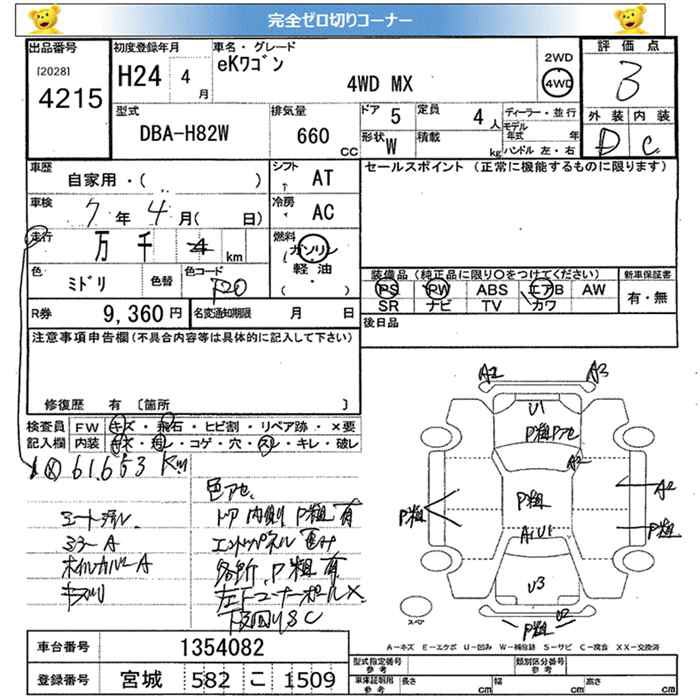 完全ゼロ切りコーナー
出品番号
[2028]
4215
初度登録年月
H24 4月
車名・グレード
eKワゴン
4WD MX
2WD
4WD
評価点
3
外装 内装
D C
型式
DBA-H82W
排気量
660 CC
ドア 5
定員 4人
形状 W
積載 kg
ディーラー・並行
モデル年式 年
ハンドル 左・右
車歴
自家用・( )
シフト AT
車検
7年 4月( 日)
冷房 AC
走行
万 千 km
燃料
ガソリン
軽油
( ・ )
色 ミドリ
色替
色コード
R券 9,360円
名変通知期限 月 日
セールスポイント (正常に機能するものに限ります)
装備品 (純正品に限り○をつけてください)
新車保証書
PS PW ABS エアB AW
SR ナビ TV カワ
有・無
後日品
注意事項申告欄(不具合内容等は具体的に記入して下さい)
修復歴 有 〔箇所 〕
検査員記入欄
FW キズ・飛石・ヒビ割・リペア跡・×要
内装 キズ・汚レ・コゲ・穴・スレ・キレ・破レ
61.653 Km
色アセ
ドア内側 P粗 有
ミラーA
ホイルカバーA
各所 P粗 有
左下コーナーポール×
下回りSC
A2 A3
U1
P粗 Pアセ
A2
P粗
A2
P粗
P粗
A1U1
U3
P粗 U2
スペア
A−キズ E−エクボ U−凹み W−補修跡 S−サビ C−腐食 XX−交換済
車台番号 1354082
登録番号 宮城 582 こ 1509
型式指定番号 参考
類別区分番号 参考
車庫証明用 参考
長さ cm
幅 cm
高さ cm